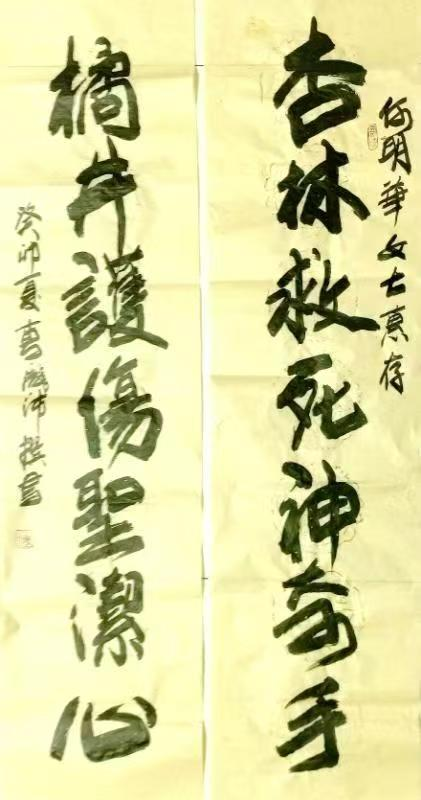 何明華女士惠存
杏林救死神奇手
橘井護傷聖潔心
癸卯夏曹 沛撰書